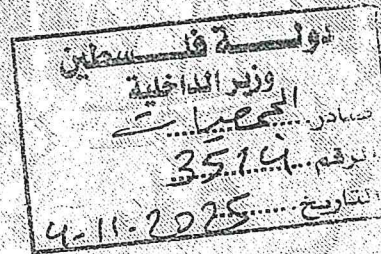 دولة فلسطين
وزير الداخلية
صادر الجمعيات
الرقم 3514
التاريخ 4-11-2025